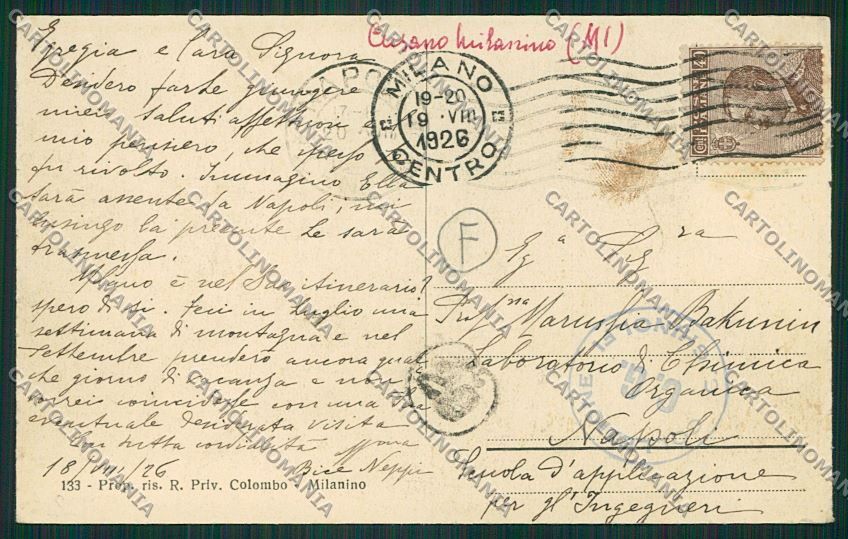 Cusano Milanino (MI)
Egregia e Cara Signora
Desidero farle giungere
miei saluti affettuosi
mio pensiero, che spesso
rivolto. Immagino Ella
sarà assente da Napoli, mi
lusingo la presente Le sarà
trasmessa.
Milano è nel Suo itinerario?
spero di sì. Feci in luglio una
settimana di montagna e nel
Settembre prenderò ancora qual
che giorno di vacanza e non
vorrei coincidesse con una Sua
eventuale desiderata visita
Con tutta cordialità affma
Bice Neppi
18/VIII/26
133 - Prop. ris. R. Priv. Colombo - Milanino
MILANO
19-20
19 · VIII
1926
CENTRO
E E
F
Eg.a Sig.ra
Prof.ssa Marussia Bakunin
Laboratorio di Chimica
Organica
Napoli
Scuola d'applicazione
per gl'Ingegneri
CARTOLINOMANIA